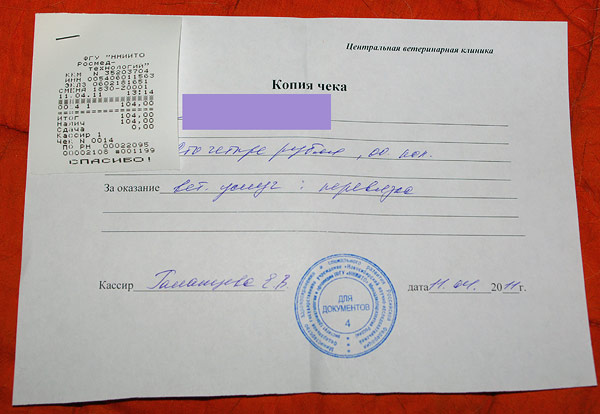 ФГУ "ННИИТО
Росмед-
технологий"
ККМ N 35203704
ИНН 005406011563
ЭКЛЗ 0602181651
СМЕНА 1630-20001
11.04.11 13:14
00.4 1 104.00
ИТОГ 104.00
Налич 104.00
Сдача 0.00
Кассир 1
Чек N 0014
ПО РН 00022095
00002108 #001199
СПАСИБО!
Центральная ветеринарная клиника
Копия чека
Сто четыре рубля, 00 коп.
За оказание вет. услуг: перевязка
Кассир Е.В. дата 11.04. 2011г.
ДЛЯ
ДОКУМЕНТОВ
4